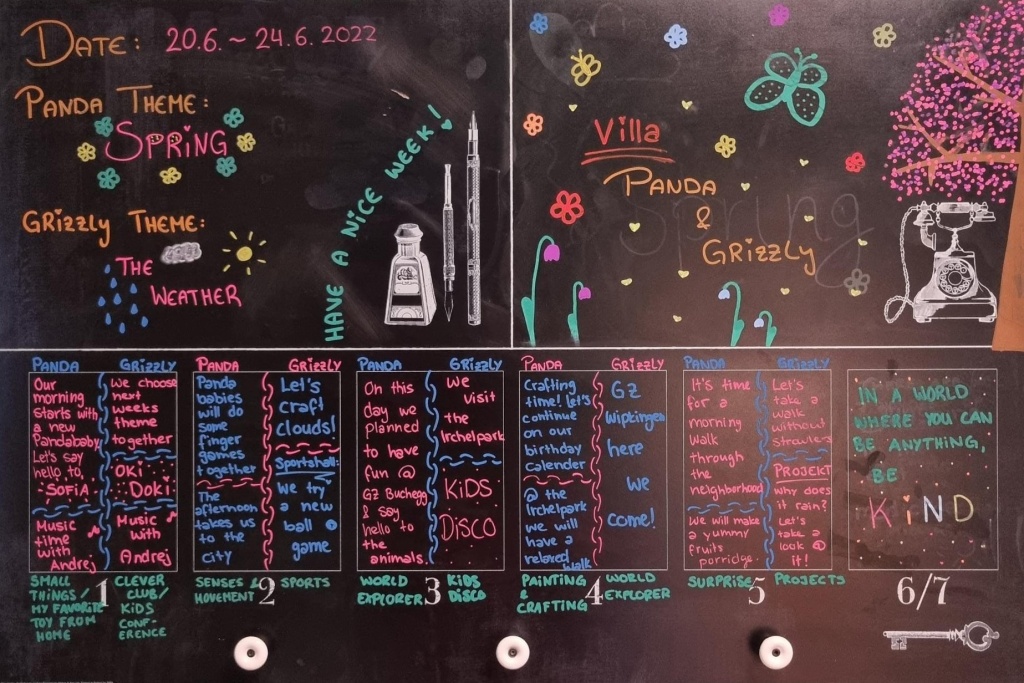 DATE: 20.6. ~ 24.6.2022
PANDA THEME:
SPRING
GRIZZLY THEME:
THE
WEATHER
HAVE A NICE WEEK!
Villa
PANDA
&
GRIZZLY
Spring
PANDA
Our
morning
starts with
a new
Pandababy
Let's say
hello to
SOFIA
Music
time
with
Andrej
GRIZZLY
We choose
next
weeks
theme
together
OKI
Doki
Music
with
Andrej
SMALL
THINGS/
MY FAVORITE
TOY FROM
HOME
1
CLEVER
CLUB/
KIDS
CONF-
ERENCE
PANDA
Panda
babies
will do
some
finger
games
together
The
afternoon
takes us
to the
city
GRIZZLY
Let's
craft
clouds!
Sportshall:
We try
a new
ball
game
SENSES &
MOVEMENT
2
SPORTS
PANDA
On this
day we
planned
to have
fun @
GZ Buchegg
& say
hello to
the
animals.
GRIZZLY
We
visit
the
Irchelpark
KIDS
DISCO
WORLD
EXPLORER
3
KIDS
DISCO
PANDA
Crafting
time! let's
continue
on our
birthday
calender
@ the
Irchelpark
we will
have a
relaxed
walk
GRIZZLY
GZ
Wipkingen
here
we
come!
PAINTING
&
CRAFTING
4
WORLD
EXPLORER
PANDA
It's time
for a
morning
walk
through
the
neighborhood
We will make
a yummy
fruits
porridge.
GRIZZLY
Let's
take a
walk
without
strawlers
PROJEKT
why does
it rain?
Let's
take a
look @
it!
SURPRISE
5
PROJECTS
IN A WORLD
WHERE YOU CAN
BE ANYTHING,
BE
KIND
6/7